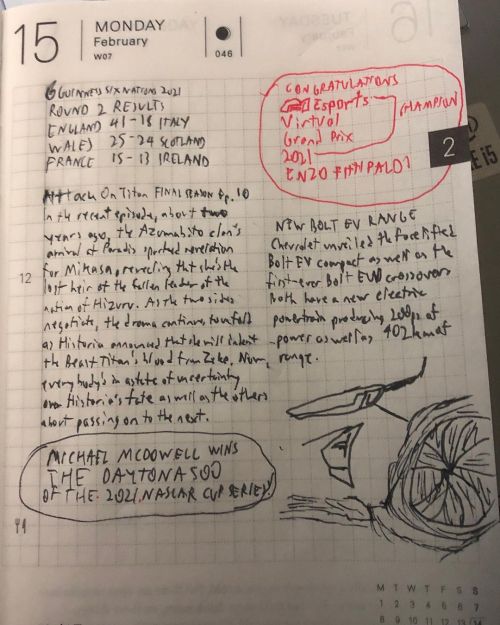 15
MONDAY
February
W07
046
TUESDAY
16
6 GUINNESS SIX NATIONS 2021
ROUND 2 RESULTS
ENGLAND 41-18 ITALY
WALES 25-24 SCOTLAND
FRANCE 15-13 IRELAND
CONGRATULATIONS
F1 Esports
Virtual
Grand Prix
2021
CHAMPION
ENZO FITTIPALDI
2
Attack On Titan FINAL SEASON Ep. 10
In the recent episode, about two
years ago, the Azumabito clan's
arrival at Paradis sparked revelation
for Mikasa, revealing that she's the
lost heir of the fallen leader of the
nation of Hizuru. As the two sides
negotiate, the drama continues to unfold
as Historia announced that she will inherit
the Beast Titan's blood from Zeke. Now,
everybody's in a state of uncertainty
over Historia's fate as well as the others
about passing on to the next.
12
NEW BOLT EV RANGE
Chevrolet unveiled the facelifted
Bolt EV compact as well as the
first-ever Bolt EUV crossover.
Both have a new electric
powertrain producing 200ps of
power as well as 402km of
range.
MICHAEL MCDOWELL WINS
THE DAYTONA 500
OF THE 2021 NASCAR CUP SERIES!
M T W T F S S
1 2 3 4 5 6 7
8 9 10 11 12 13 14